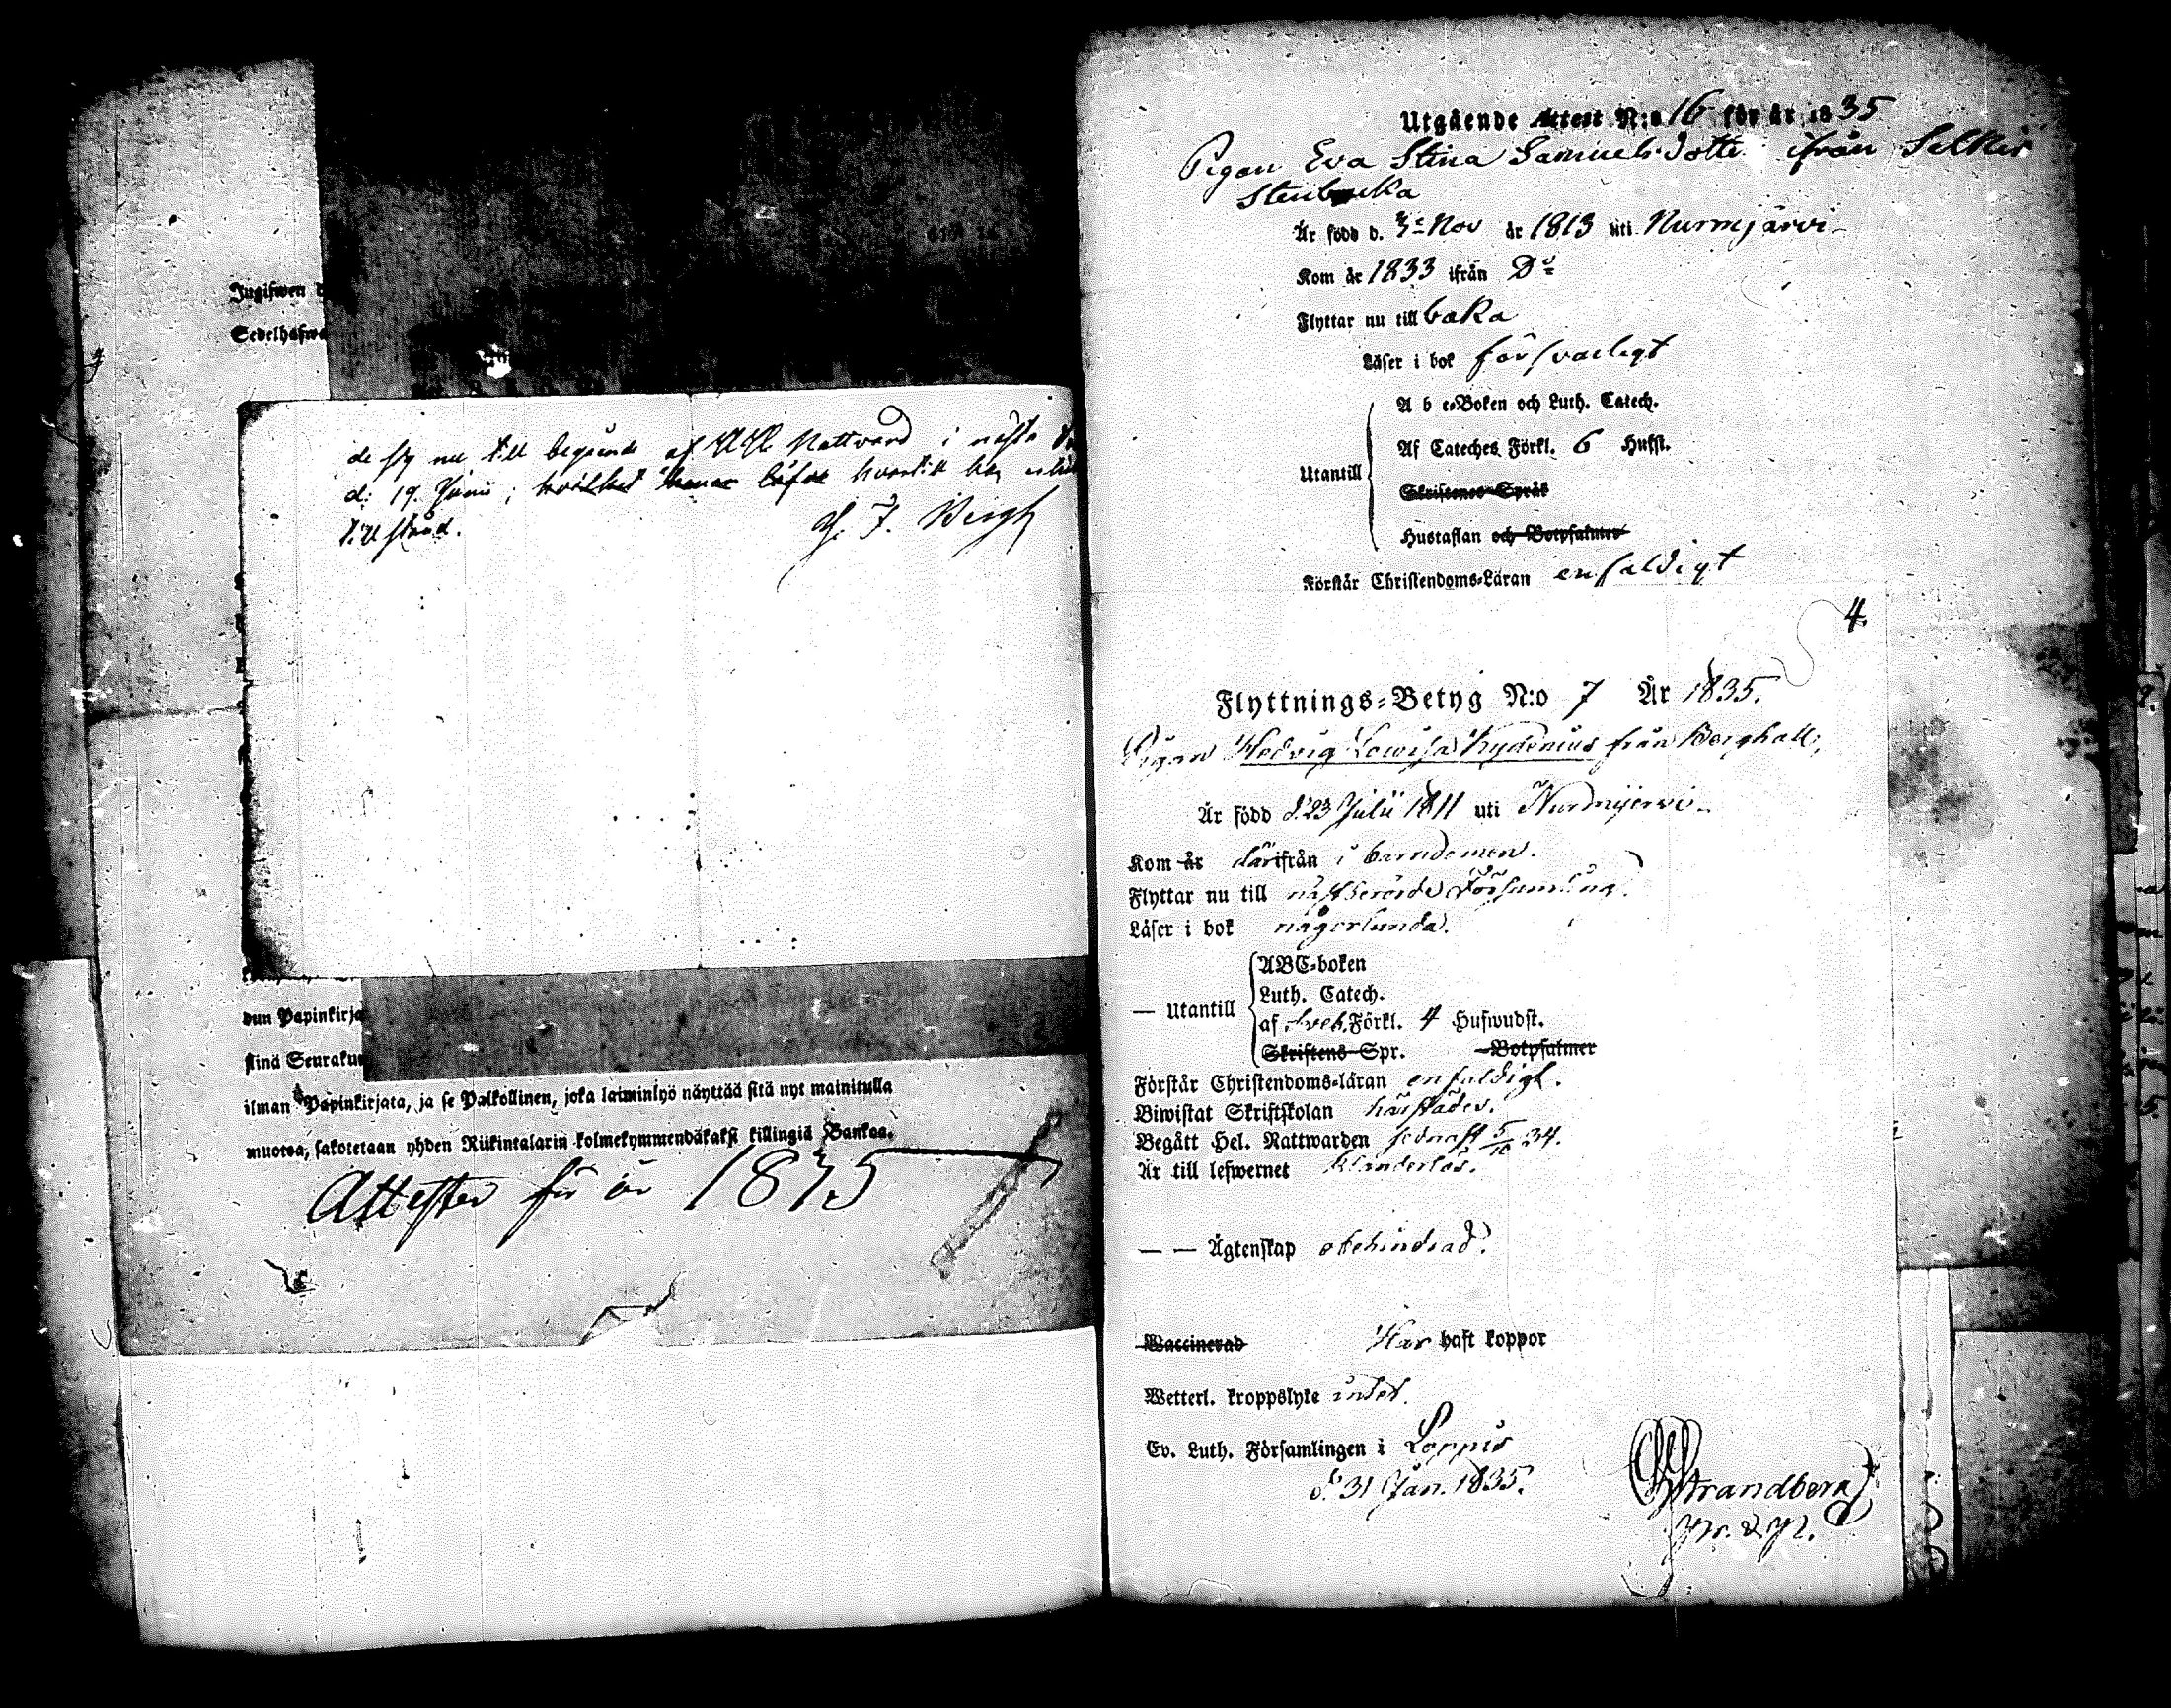 Ingifwen d
Sedelhafwa
de sig nu till begående af HH Nattvard i nästa
d: 19. Junii; hvartill han
till stånd.
G. F. Bergh
dun Papinkirja
stinä Seuraku
ilman Papinkirjata, ja se Palkollinen, joka laiminlyö näyttää sitä nyt mainitulla
muotoa, sakotetaan yhden Riikintalarin kolmekymmendäkaksi killingiä Bankoa.
Attester för år 1835
Utgående Attest N:o 16 för år 1835
Pigan Eva Stina Samuelsdotter ifrån Selkis
Stenbacka
Är född d. 3 Nov år 1813 uti Nurmjärvi
Kom år 1833 ifrån Do
Flyttar nu till baka
Läser i bok försvarligt
A b c-Boken och Luth. Catech.
Af Cateches Förkl. 6 Hufst.
Utantill
Skriftenes Språk
Hustaflan och Botpsalmer
Förstår Christendoms-Läran enfaldigt
4.
Flyttnings-Betyg N:o 7 År 1835.
Pigan Hedvig Lowisa Kydenius från Berghall,
Är född d. 23 Julii 1811 uti Nurmijerwi
Kom år därifrån i barndomen.
Flyttar nu till näst berörde Församling.
Läser i bok någorlunda.
ABC-boken
Luth. Catech.
— Utantill
af Sveb. Förkl. 4 Hufwudst.
Skriftens Spr. Botpsalmer
Förstår Christendoms-läran enfaldigt.
Biwistat Skriftskolan härstädes.
Begått Hel. Nattwarden sednast 5/10 34.
Är till lefwernet klanderlös.
— — Ägtenskap obehindrad.
Waccinerad Har haft koppor
Wetterl. kroppslyte intet.
Ev. Luth. Församlingen i Loppis
d. 31 Jan. 1835.
Strandberg